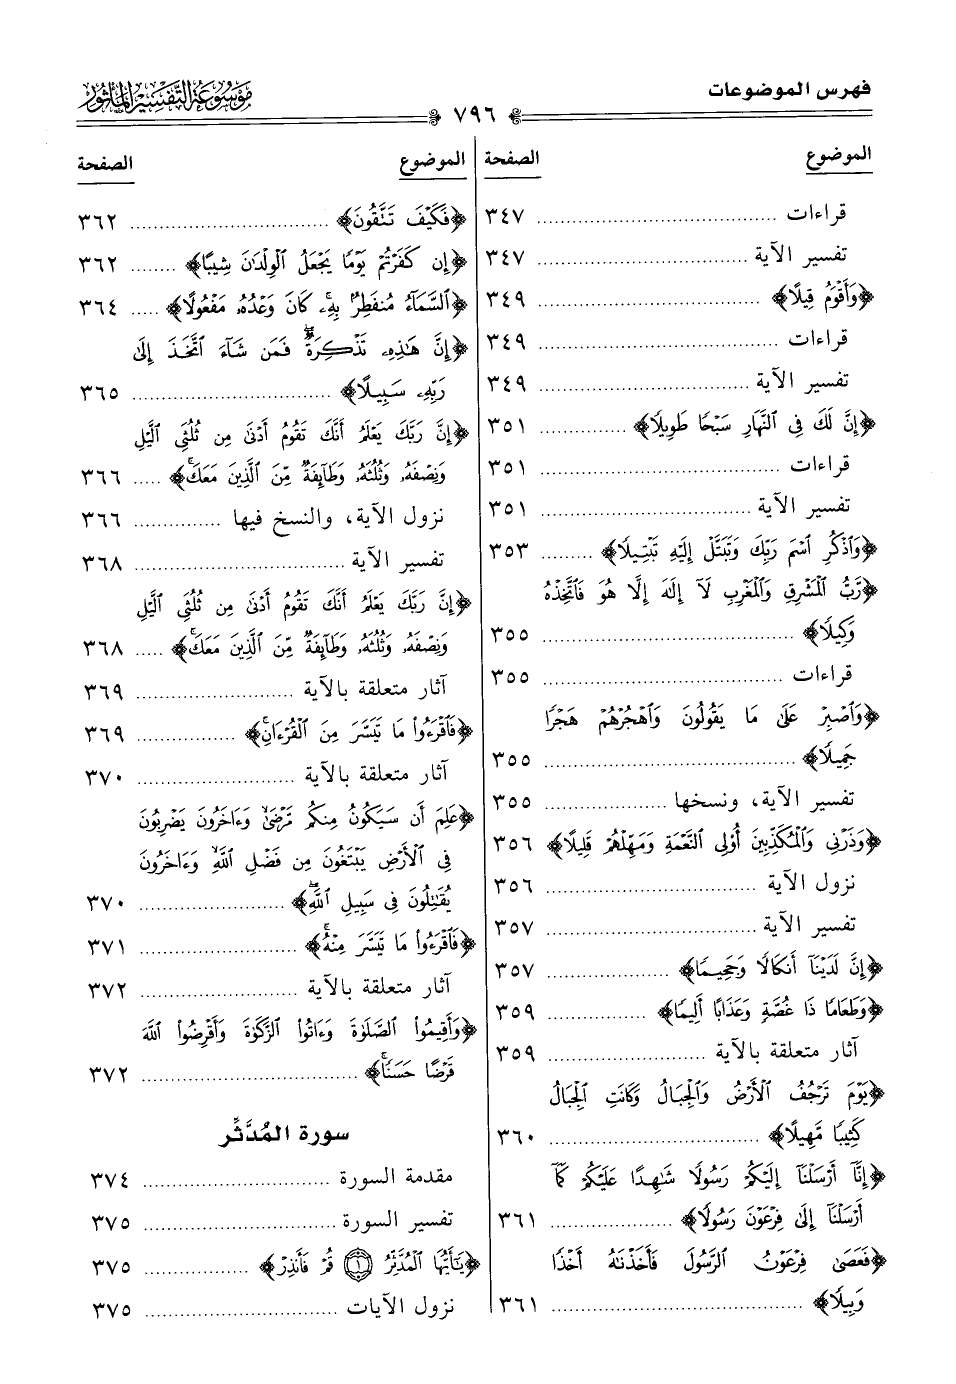 فهرس الموضوعات
موسوعة التفسير المأثور
٧٩٦
الموضوع الصفحة
قراءات ........ ٣٤٧
تفسير الآية ........ ٣٤٧
﴿وَأَقْوَمُ قِيلًا﴾ ........ ٣٤٩
قراءات ........ ٣٤٩
تفسير الآية ........ ٣٤٩
﴿إِنَّ لَكَ فِى ٱلنَّهَارِ سَبْحًا طَوِيلًا﴾ ........ ٣٥١
قراءات ........ ٣٥١
تفسير الآية ........ ٣٥١
﴿وَٱذْكُرِ ٱسْمَ رَبِّكَ وَتَبَتَّلْ إِلَيْهِ تَبْتِيلًا﴾ ........ ٣٥٣
﴿رَّبُّ ٱلْمَشْرِقِ وَٱلْمَغْرِبِ لَآ إِلَٰهَ إِلَّا هُوَ فَٱتَّخِذْهُ
وَكِيلًا﴾ ........ ٣٥٥
قراءات ........ ٣٥٥
﴿وَٱصْبِرْ عَلَىٰ مَا يَقُولُونَ وَٱهْجُرْهُمْ هَجْرًا
جَمِيلًا﴾ ........ ٣٥٥
تفسير الآية، ونسخها ........ ٣٥٥
﴿وَذَرْنِى وَٱلْمُكَذِّبِينَ أُو۟لِى ٱلنَّعْمَةِ وَمَهِّلْهُمْ قَلِيلًا﴾ ٣٥٦
نزول الآية ........ ٣٥٦
تفسير الآية ........ ٣٥٧
﴿إِنَّ لَدَيْنَآ أَنكَالًا وَجَحِيمًا﴾ ........ ٣٥٧
﴿وَطَعَامًا ذَا غُصَّةٍ وَعَذَابًا أَلِيمًا﴾ ........ ٣٥٩
آثار متعلقة بالآية ........ ٣٥٩
﴿يَوْمَ تَرْجُفُ ٱلْأَرْضُ وَٱلْجِبَالُ وَكَانَتِ ٱلْجِبَالُ
كَثِيبًا مَّهِيلًا﴾ ........ ٣٦٠
﴿إِنَّآ أَرْسَلْنَآ إِلَيْكُمْ رَسُولًا شَٰهِدًا عَلَيْكُمْ كَمَآ
أَرْسَلْنَآ إِلَىٰ فِرْعَوْنَ رَسُولًا﴾ ........ ٣٦١
﴿فَعَصَىٰ فِرْعَوْنُ ٱلرَّسُولَ فَأَخَذْنَٰهُ أَخْذًا
وَبِيلًا﴾ ........ ٣٦١
الموضوع الصفحة
﴿فَكَيْفَ تَتَّقُونَ﴾ ........ ٣٦٢
﴿إِن كَفَرْتُمْ يَوْمًا يَجْعَلُ ٱلْوِلْدَٰنَ شِيبًا﴾ ........ ٣٦٢
﴿ٱلسَّمَآءُ مُنفَطِرٌۢ بِهِۦ ۚ كَانَ وَعْدُهُۥ مَفْعُولًا﴾ ..... ٣٦٤
﴿إِنَّ هَٰذِهِۦ تَذْكِرَةٌ ۖ فَمَن شَآءَ ٱتَّخَذَ إِلَىٰ
رَبِّهِۦ سَبِيلًا﴾ ........ ٣٦٥
﴿إِنَّ رَبَّكَ يَعْلَمُ أَنَّكَ تَقُومُ أَدْنَىٰ مِن ثُلُثَىِ ٱلَّيْلِ
وَنِصْفَهُۥ وَثُلُثَهُۥ وَطَآئِفَةٌ مِّنَ ٱلَّذِينَ مَعَكَ ۚ﴾ ..... ٣٦٦
نزول الآية، والنسخ فيها ........ ٣٦٦
تفسير الآية ........ ٣٦٨
﴿إِنَّ رَبَّكَ يَعْلَمُ أَنَّكَ تَقُومُ أَدْنَىٰ مِن ثُلُثَىِ ٱلَّيْلِ
وَنِصْفَهُۥ وَثُلُثَهُۥ وَطَآئِفَةٌ مِّنَ ٱلَّذِينَ مَعَكَ ۚ﴾ ..... ٣٦٨
آثار متعلقة بالآية ........ ٣٦٩
﴿فَٱقْرَءُوا۟ مَا تَيَسَّرَ مِنَ ٱلْقُرْءَانِ ۚ﴾ ........ ٣٦٩
آثار متعلقة بالآية ........ ٣٧٠
﴿عَلِمَ أَن سَيَكُونُ مِنكُم مَّرْضَىٰ ۙ وَءَاخَرُونَ يَضْرِبُونَ
فِى ٱلْأَرْضِ يَبْتَغُونَ مِن فَضْلِ ٱللَّهِ ۙ وَءَاخَرُونَ
يُقَٰتِلُونَ فِى سَبِيلِ ٱللَّهِ ۖ﴾ ........ ٣٧٠
﴿فَٱقْرَءُوا۟ مَا تَيَسَّرَ مِنْهُ ۚ﴾ ........ ٣٧١
آثار متعلقة بالآية ........ ٣٧٢
﴿وَأَقِيمُوا۟ ٱلصَّلَوٰةَ وَءَاتُوا۟ ٱلزَّكَوٰةَ وَأَقْرِضُوا۟ ٱللَّهَ
قَرْضًا حَسَنًا ۚ﴾ ........ ٣٧٢
سورة المُدَّثِّر
مقدمة السورة ........ ٣٧٤
تفسير السورة ........ ٣٧٥
﴿يَٰٓأَيُّهَا ٱلْمُدَّثِّرُ ١ قُمْ فَأَنذِرْ﴾ ........ ٣٧٥
نزول الآيات ........ ٣٧٥